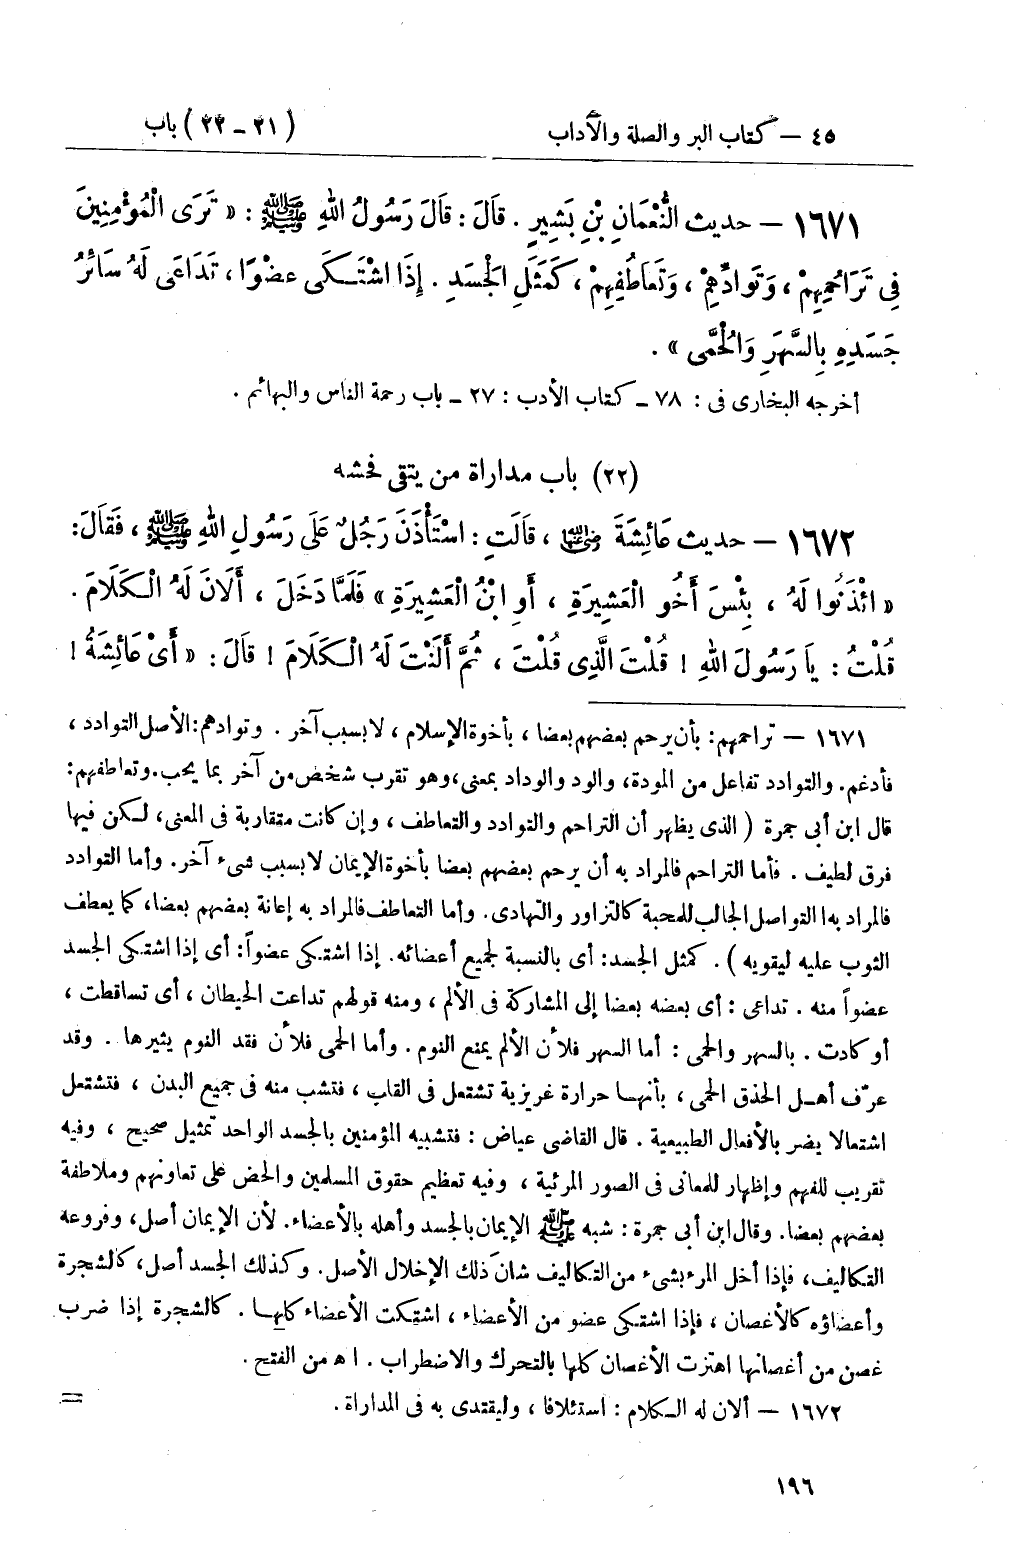 ٤٥ — كتاب البر والصلة والآداب
(٢١ - ٢٢) باب
١٦٧١ — حديث النُّعْمَانِ بْنِ بَشِيرٍ . قَالَ : قَالَ رَسُولُ اللهِ ﷺ : « تَرَى الْمُؤْمِنِينَ
فِي تَرَاحُمِهِمْ ، وَتَوَادِّهِمْ ، وَتَعَاطُفِهِمْ ، كَمَثَلِ الْجَسَدِ . إِذَا اشْتَكَى عضْوًا ، تَدَاعَى لَهُ سَائِرُ
جَسَدِهِ بِالسَّهَرِ وَالْحُمَّى » .
أخرجه البخارى فى : ٧٨ ـ كتاب الأدب : ٢٧ ـ باب رحمة الناس والبهائم .
(٢٢) باب مداراة من يتقى فحشه
١٦٧٢ — حديث عَائِشَةَ رضي الله عنها ، قَالَتِ : اسْتَأْذَنَ رَجُلٌ عَلَى رَسُولِ اللهِ ﷺ ، فَقَالَ :
« ائْذَنُوا لَهُ ، بِئْسَ أَخُو الْعَشِيرَةِ ، أَوِ ابْنُ الْعَشِيرَةِ » فَلَمَّا دَخَلَ ، أَلَانَ لَهُ الْكَلَامَ .
قُلْتُ : يَا رَسُولَ اللهِ ! قُلْتَ الَّذِى قُلْتَ ، ثُمَّ أَلَنْتَ لَهُ الْكَلَامَ ! قَالَ : « أَىْ عَائِشَةُ !
١٦٧١ — تراحمهم : بأن يرحم بعضهم بعضا ، بأخوة الإسلام ، لا بسبب آخر . وتوادهم : الأصل التوادد ،
فأدغم . والتوادد تفاعل من المودة، والود والوداد بمعنى، وهو تقرب شخص من آخر بما يحب . وتعاطفهم :
قال ابن أبى جمرة ( الذى يظهر أن التراحم والتوادد والتعاطف ، وإن كانت متقاربة فى المعنى، لكن فيها
فرق لطيف . فأما التراحم فالمراد به أن يرحم بعضهم بعضا بأخوة الإيمان لا بسبب شىء آخر . وأما التوادد
فالمراد به التواصل الجالب للمحبة كالتزاور والتهادى . وأما التعاطف فالمراد به إعانة بعضهم بعضا، كما يعطف
الثوب عليه ليقويه ) . كمثل الجسد : أى بالنسبة لجميع أعضائه . إذا اشتكى عضواً : أى إذا اشتكى الجسد
عضواً منه . تداعى : أى بعضه بعضا إلى المشاركة فى الألم ، ومنه قولهم تداعت الحيطان ، أى تساقطت ،
أو كادت . بالسهر والحمى : أما السهر فلأن الألم يمنع النوم . وأما الحمى فلأن فقد النوم يثيرها . وقد
عرّف أهل الحذق الحمى ، بأنها حرارة غريزية تشتعل فى القلب ، فتشب منه فى جميع البدن ، فتشتعل
اشتعالا يضر بالأفعال الطبيعية . قال القاضى عياض : فتشبيه المؤمنين بالجسد الواحد تمثيل صحيح ، وفيه
تقريب للفهم وإظهار للمعانى فى الصور المرئية ، وفيه تعظيم حقوق المسلمين والحض على تعاونهم وملاطفة
بعضهم بعضا . وقال ابن أبى جمرة : شبه ﷺ الإيمان بالجسد وأهله بالأعضاء . لأن الإيمان أصل، وفروعه
التكاليف، فإذا أخل المرء بشىء من التكاليف شان ذلك الإخلال الأصل . وكذلك الجسد أصل، كالشجرة
وأعضاؤه كالأغصان ، فإذا اشتكى عضو من الأعضاء ، اشتكت الأعضاء كلها . كالشجرة إذا ضرب
غصن من أغصانها اهتزت الأغصان كلها بالتحرك والاضطراب . ا ه من الفتح .
١٦٧٢ — ألان له الكلام : استئلافا ، وليقتدى به فى المداراة .
=
١٩٦